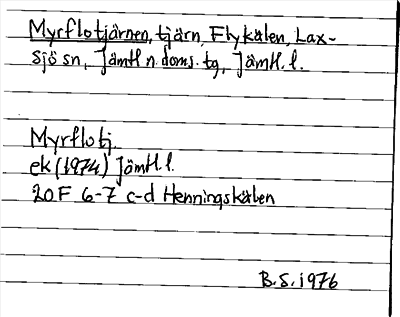 Myrflotjärnen, tjärn, Flykälen, Lax-
sjö sn, Jämtl n. doms. tg, Jämtl. l.
Myrflotj.
ek (1974) Jämtl. l.
20F 6-7 c-d Henningskälen
B.S. 1976